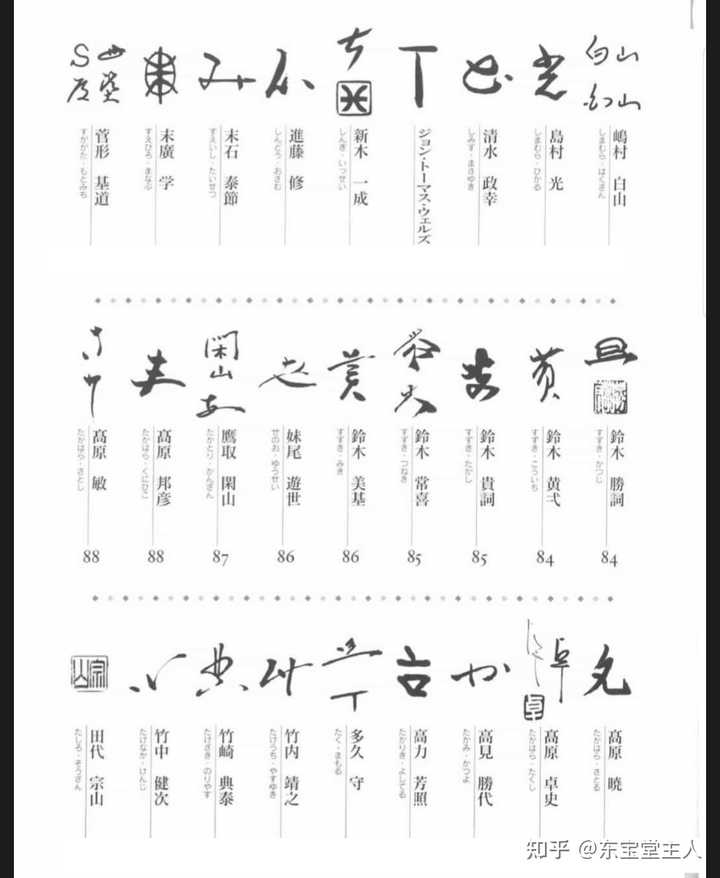 嶋村 白山
しまむら・はくざん
島村 光
しまむら・ひかる
清水 政幸
しみず・まさゆき
ジョン・トーマス・ウェルズ
新木 一成
しんぎ・いっせい
進藤 修
しんどう・おさむ
末石 泰節
すえいし・たいせつ
末廣 学
すえひろ・まなぶ
菅形 基道
すがかた・もとみち
鈴木 勝詞
すずき・かつじ
84
鈴木 黄弌
すずき・こういち
84
鈴木 貴詞
すずき・たかし
85
鈴木 常喜
すずき・つねき
85
鈴木 美基
すずき・みき
86
妹尾 遊世
せのお・ゆうせい
86
鷹取 閑山
たかとり・かんざん
87
髙原 邦彦
たかはら・くにひこ
88
髙原 敏
たかはら・さとし
88
髙原 暁
たかはら・さとる
髙原 卓史
たかはら・たくし
高見 勝代
たかみ・かつよ
高力 芳照
たかりき・よしてる
多久 守
たく・まもる
竹内 靖之
たけうち・やすゆき
竹崎 典泰
たけざき・のりやす
竹中 健次
たけなか・けんじ
田代 宗山
たしろ・そうざん
知乎 @东宝堂主人